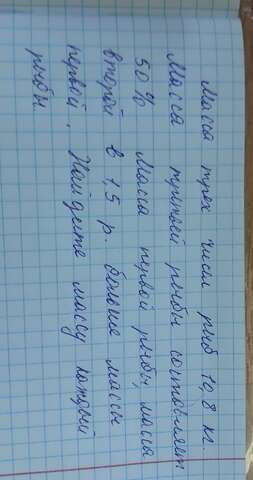 Масса трех чисы рыб 10,8 кг.
Масса третьей рыбы составляет
50% массы первой рыбы, масса
второй в 1,5 р. больше массы
первой. Найдите массу каждой
рыбы.